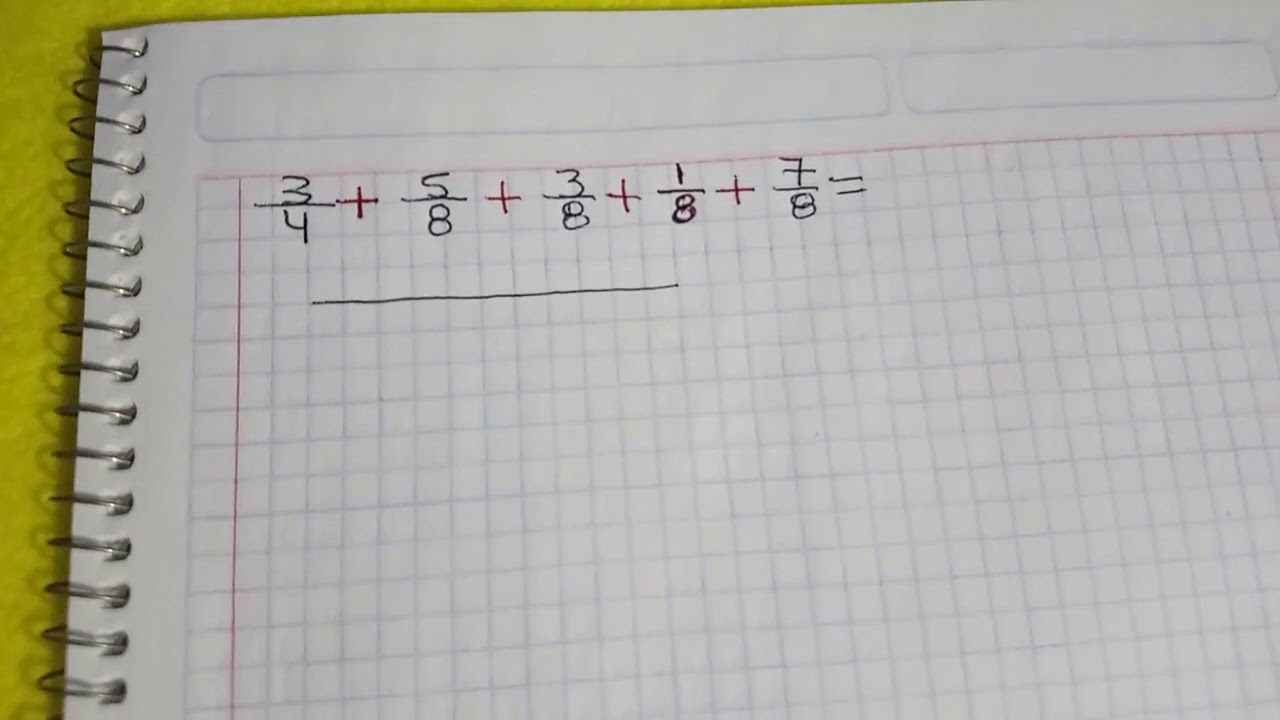 3/4 + 5/8 + 3/8 + 1/8 + 7/8 =